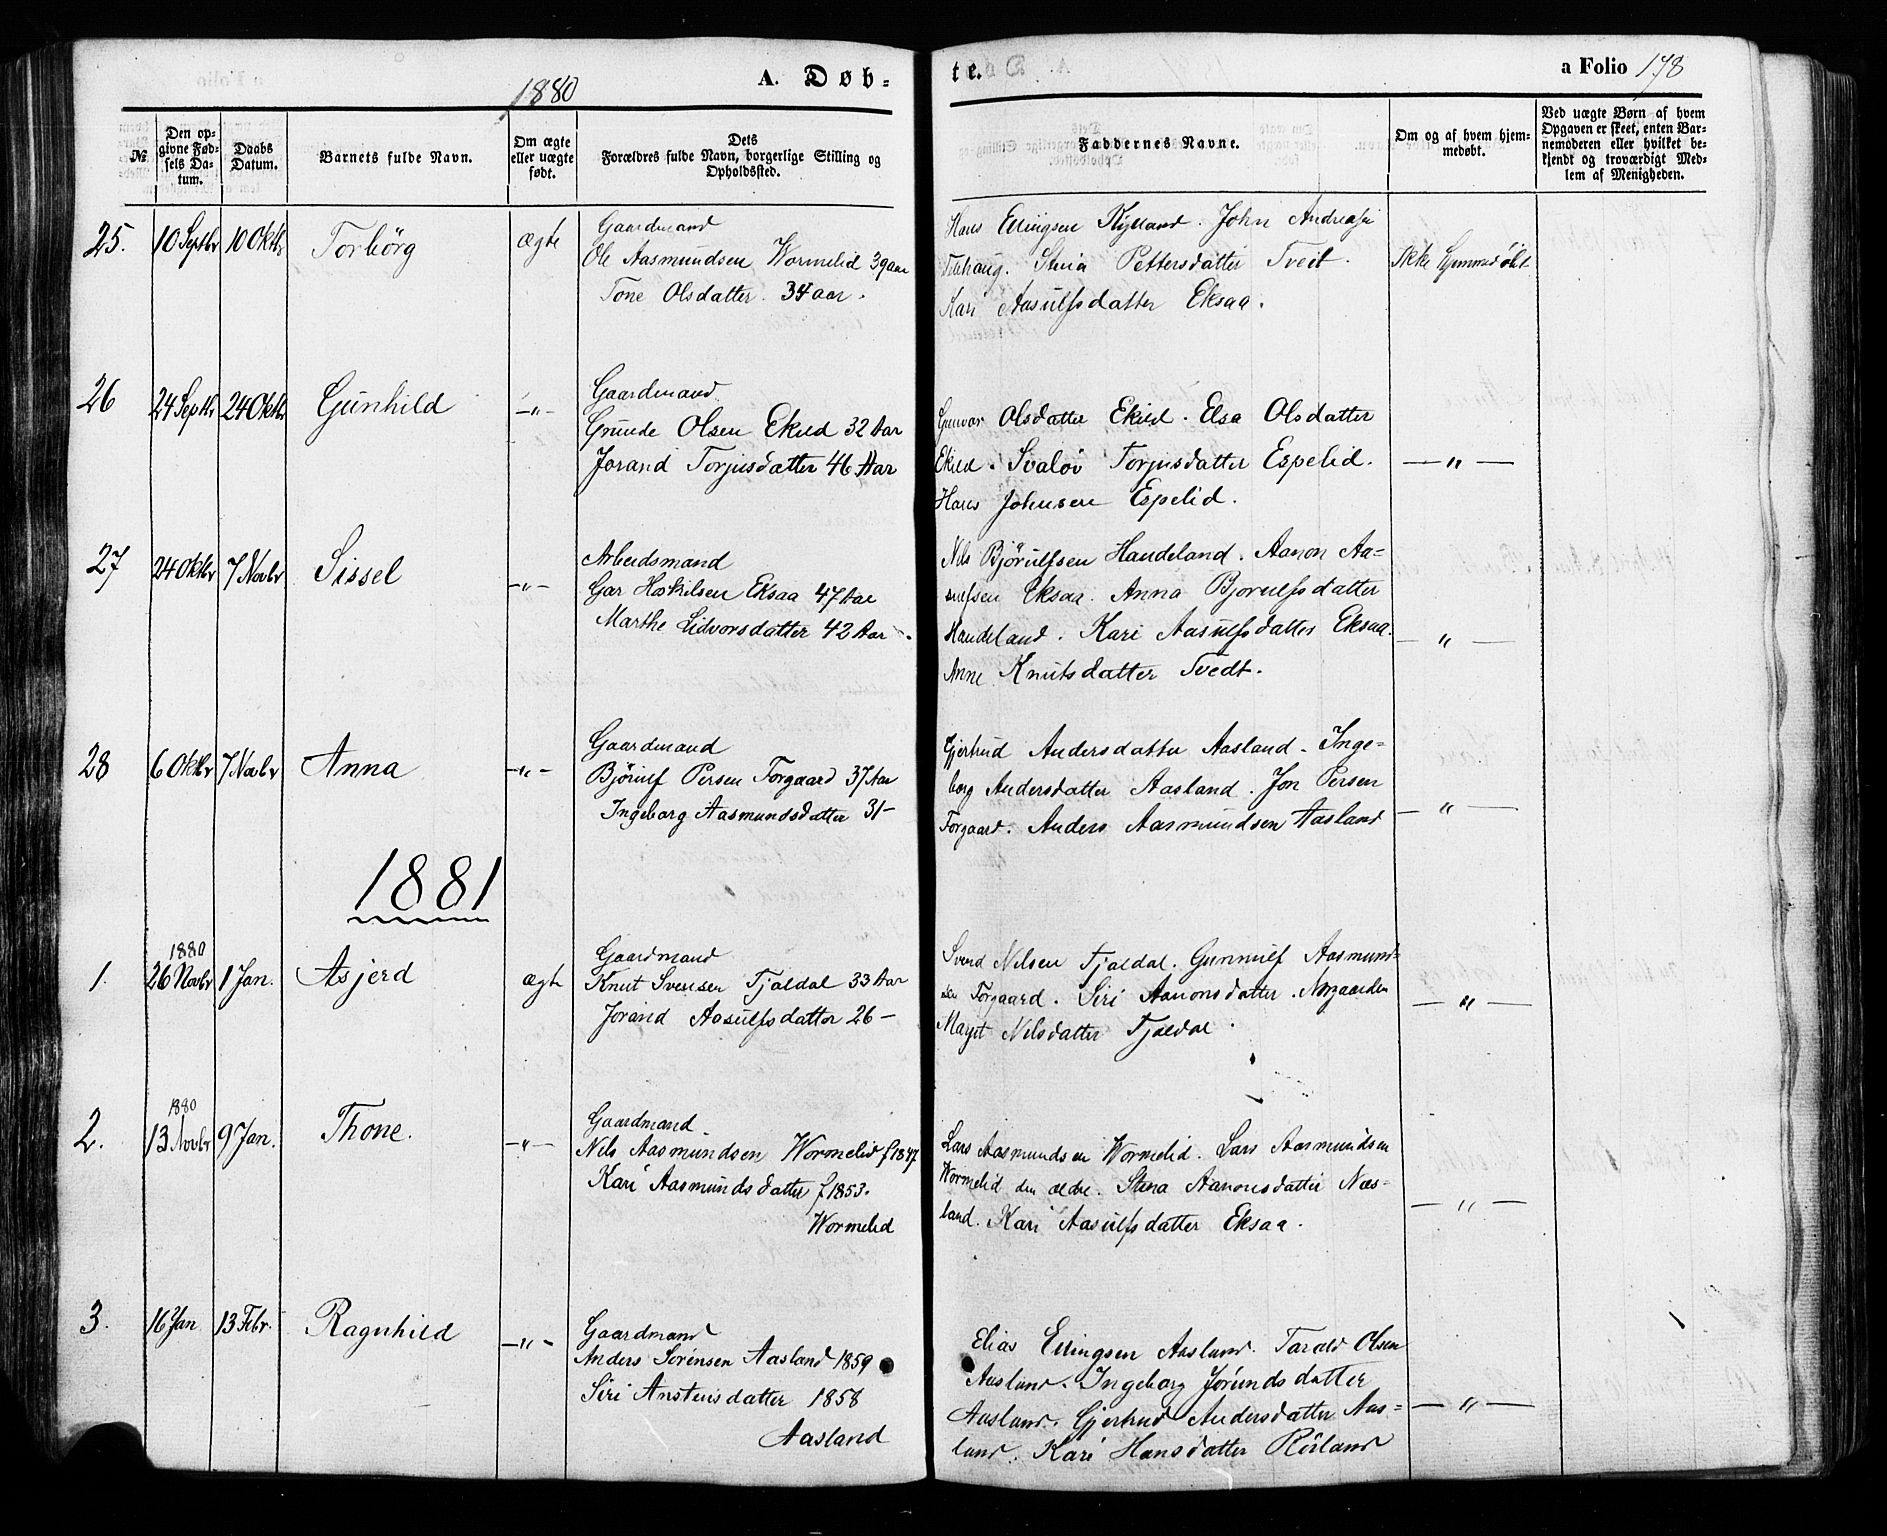 1880
A. Døb-
te.
a Folio 178
№
Den op-
givne Fød-
sels Da-
tum.
Daabs
Datum.
Barnets fulde Navn.
Om ægte
eller uægte
født.
Dets
Forældres fulde Navn, borgerlige Stilling og
Opholdssted.
Faddernes Navne.
Om og af hvem hjem-
medøbt.
Ved uægte Børn af hvem
Opgaven er skeet, enten Bar-
nemoderen eller hvilket be-
kjendt og troværdigt Med-
lem af Menigheden.
25. 10 Septbr 10 Oktbr Torbörg ægte
Gaardmand
Ole Aasmundsen Wormelid 39 aar
Tone Olsdatter. 34 aar.
Hans Ellingsen Kylland. John Andreas
Stina Pettersdatter Tveit.
Kari Aasulfsdatter Eksaa.
Ikke hjemmedöbt
26 24 Septbr 24 Oktbr Gunhild —"—
Gaardmand
Grunde Olsen Ekeld 32 Aar
Jorand Torjusdatter 46 Aar
Gunvor Olsdatter Ekeld. Elsa Olsdatter
Ekeld. Svalöv Torjusdatter Espelid.
Hans Johnsen Espelid.
—"—
27 24 Oktbr 7 Novbr Sissel —"—
Arbeidsmand
Gar Hoskilsen Eksaa 47 Aar
Marthe Lidvorsdatter 42 Aar.
Nils Bjørulfsen Haudeland. Aanon Aa-
sulfsen Eksaa. Anna Bjorulfsdatter
Haudeland. Kari Aasulfsdatter Eksaa.
Anne Knutsdatter Tvedt.
—"—
28 6 Oktbr 7 Novbr Anna —"—
Gaardmand
Bjørulf Persen Forgaard 37 Aar
Ingeborg Aasmundsdatter 31—
Gjertrud Andersdatter Aasland. Inge-
borg Andersdatter Aasland. Jon Persen
Forgaard. Anders Aasmundsen Aasland
—"—
1881
1880
1. 26 Novbr 1 Jan. Asjerd ægte
Gaardmand
Knut Svensen Tjaldal 33 Aar
Jorand Aasulfsdatter 26—
Svend Nilsen Tjaldal. Gunnulf Aasmund-
sen Forgaard. Siri Aanonsdatter Norgaarden
Margit Nilsdatter Tjaldal.
—"—
1880
2. 13 Novbr 9 Jan. Thone. —"—
Gaardmand
Nils Aasmundsen Wormelid f 1847
Kari Aasmundsdatter f 1853.
Wormelid
Lars Aasmundsen Wormelid. Lars Aasmundsen
Wormelid den ældre. Stina Aanonsdatter Næs-
land. Kari Aasulfsdatter Eksaa.
—"—
3. 16 Jan 13 Febr. Ragnhild —"—
Gaardmand
Anders Sorensen Aasland 1859
Siri Anstensdatter 1858
Aasland
Elias Ellingsen Aasland. Tarald Olsen
Aasland. Ingeborg Jörundsdatter
Aasland. Gjertrud Andersdatter Aas-
land. Kari Hansdatter Röiland
—"—